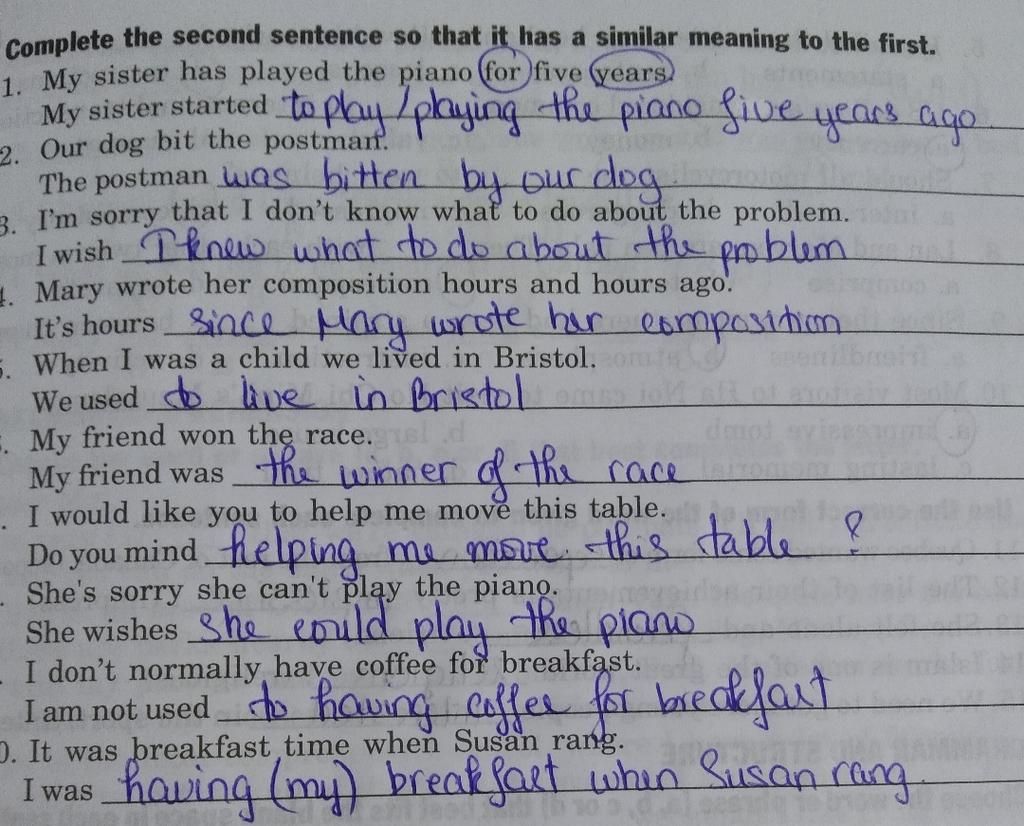 Complete the second sentence so that it has a similar meaning to the first.
1. My sister has played the piano for five years.
My sister started to play / playing the piano five years ago
2. Our dog bit the postman.
The postman was bitten by our dog.
3. I'm sorry that I don't know what to do about the problem.
I wish I knew what to do about the problem
4. Mary wrote her composition hours and hours ago.
It's hours since Mary wrote her composition
5. When I was a child we lived in Bristol.
We used to live in Bristol
. My friend won the race.
My friend was the winner of the race
. I would like you to help me move this table.
Do you mind helping me move this table ?
. She's sorry she can't play the piano.
She wishes she could play the piano
. I don't normally have coffee for breakfast.
I am not used to having coffee for breakfast
0. It was breakfast time when Susan rang.
I was having (my) breakfast when Susan rang.